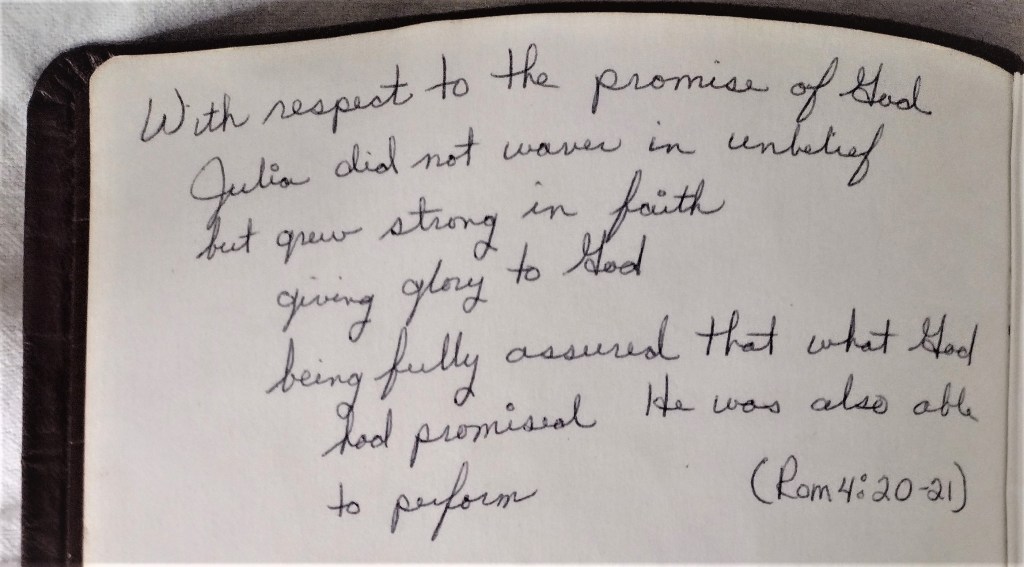 With respect to the promise of God
Julia did not waver in unbelief
but grew strong in faith
giving glory to God
being fully assured that what God
had promised He was also able
to perform (Rom 4:20-21)